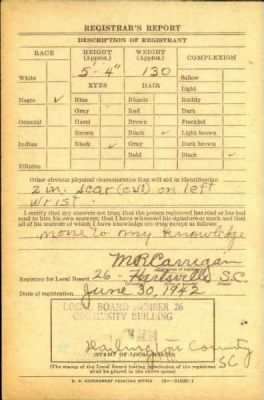 REGISTRAR'S REPORT
DESCRIPTION OF REGISTRANT
RACE HEIGHT (Approx.) WEIGHT (Approx.) COMPLEXION
White 5'-4" 130 Sallow
EYES HAIR Light
Negro ✓ Blue Blonde Ruddy
Gray Red Dark
Oriental Hazel Brown Freckled
Brown Black ✓ Light brown
Indian Black ✓ Gray Dark brown
Bald Black ✓
Filipino
Other obvious physical characteristics that will aid in identification
2 in. scar (cut) on left
wrist.
I certify that my answers are true; that the person registered has read or has had
read to him his own answers; that I have witnessed his signature or mark and that
all of his answers of which I have knowledge are true, except as follows:
none to my knowledge
M R Carrigan
Registrar for Local Board 26 - Hartsville S.C.
Date of registration June 30, 1942
LOCAL BOARD NUMBER 26
COMMUNITY BUILDING
County
SC
(STAMP OF LOCAL BOARD)
(The stamp of the Local Board having jurisdiction of the registrant
shall be placed in the above space)
U. S. GOVERNMENT PRINTING OFFICE